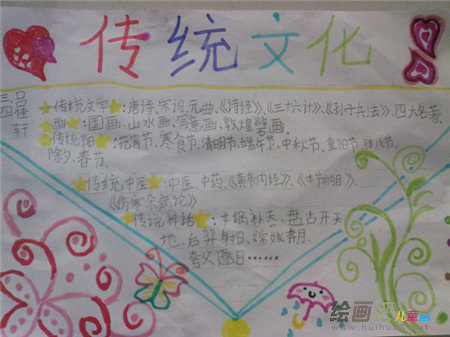 传统文化
三四 吕佳轩
传统文学：唐诗、宋词、元曲、《诗经》、《三十六计》、《孙子兵法》、四大名著、
画：国画、山水画、写意画、敦煌壁画。
传统节日：元宵节、寒食节、清明节、端午节、中秋节、重阳节、腊八节、
除夕、春节。
传统中医：中医、中药、《黄帝内经》、《本草纲目》、
《伤寒杂病论》
传说神话：女娲补天、盘古开天
地、后羿射日、嫦娥奔月、
夸父逐日……
绘画 儿童画
www.huihua8.net